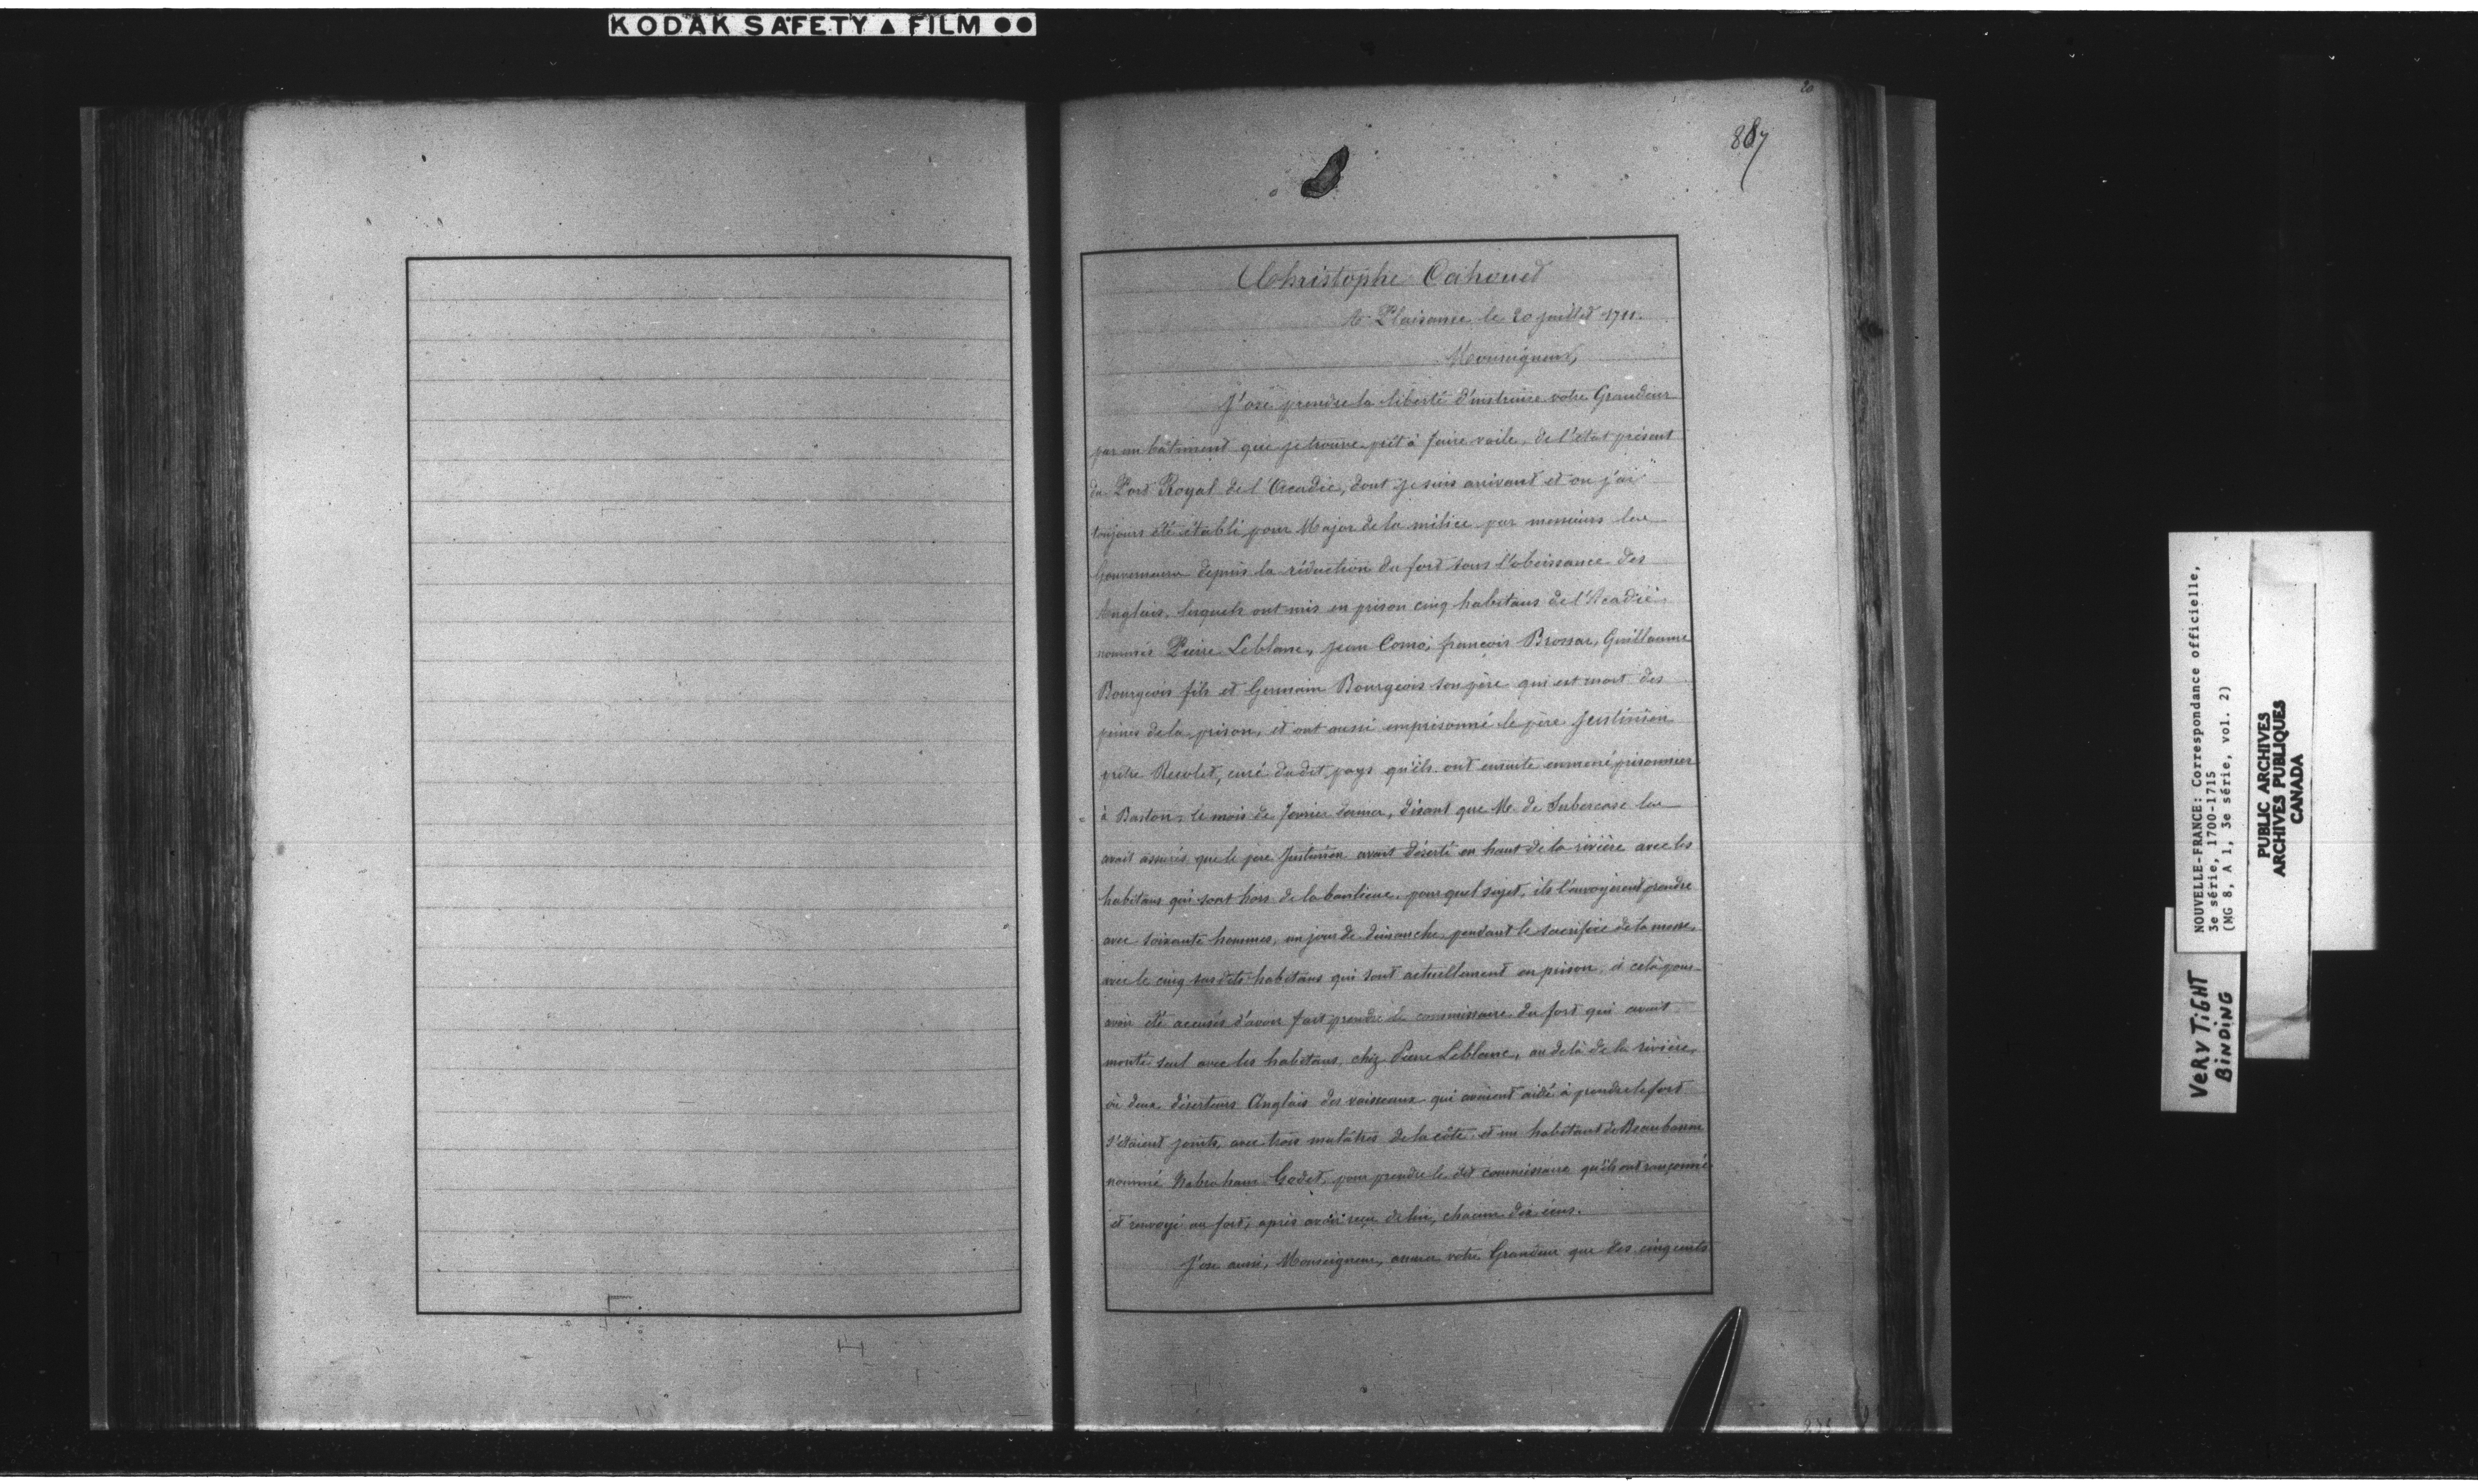 KODAK SAFETY ▲ FILM ●●
20
887
Christophe Cahouet
A Plaisance le 20 juillet 1711.
Monseigneur,
J'ose prendre la liberté d'instruire votre Grandeur
par un bâtiment que je trouve prêt à faire voile, de l'état présent
du Port Royal de l'Acadie, dont je suis arrivant et ou j'ai
toujours été établi pour Major de la milice par messieurs les
Gouverneurs depuis la réduction du fort sous l'obeissance des
Anglais, lesquels ont mis en prison cinq habitans de l'Acadie
nommés Pierre Leblanc, jean Como, françois Brossar, Guillaume
Bourgeois fils et Germain Bourgeois son père qui est mort des
peines de la prison, et ont aussi emprisonné le père Justinien
prêtre Recolet, curé dudit pays qu'ils ont ensuite emmené prisonnier
à Baston, le mois de Janvier dernier, disant que Mr. de Subercase les
avait assurés que le père Justinien avait déserté en haut de la rivière avec les
habitans qui sont hors de la banlieue, pour quel sujet, ils l'envoyèrent prendre
avec soixante hommes, un jour de dimanche pendant le sacrifice de la messe,
avec le cinq susdits habitans qui sont actuellement en prison, à cela pour
avoir été accusés d'avoir fait prendre le commissaire du fort qui avait
monté seul avec les habitans, chez Pierre Leblanc, au delà de la rivière,
où deux déserteurs Anglais des vaisseaux qui avaient aidé à prendre le fort
s'étaient joints, avec trois mulâtres de la côte et un habitant de Beaubassin
nommé Habraham Godet, pour prendre le dit commissaire qu'ils ont rançonné
et renvoyé au fort, après avoir reçu de lui, chacun dix écus.
J'ose aussi, Monseigneur, assurer votre Grandeur que des cinq cents
NOUVELLE-FRANCE: Correspondance officielle,
3e série, 1700-1715
(MG 8, A 1, 3e série, vol. 2)
PUBLIC ARCHIVES
ARCHIVES PUBLIQUES
CANADA
VERY TiGHT
BiNDiNG